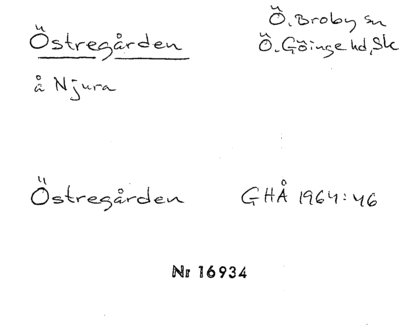 Östregården
Ö. Broby sn
Ö. Göinge hd, Sk
å Njura
Östregården GHÅ 1964:46
Nr 16934